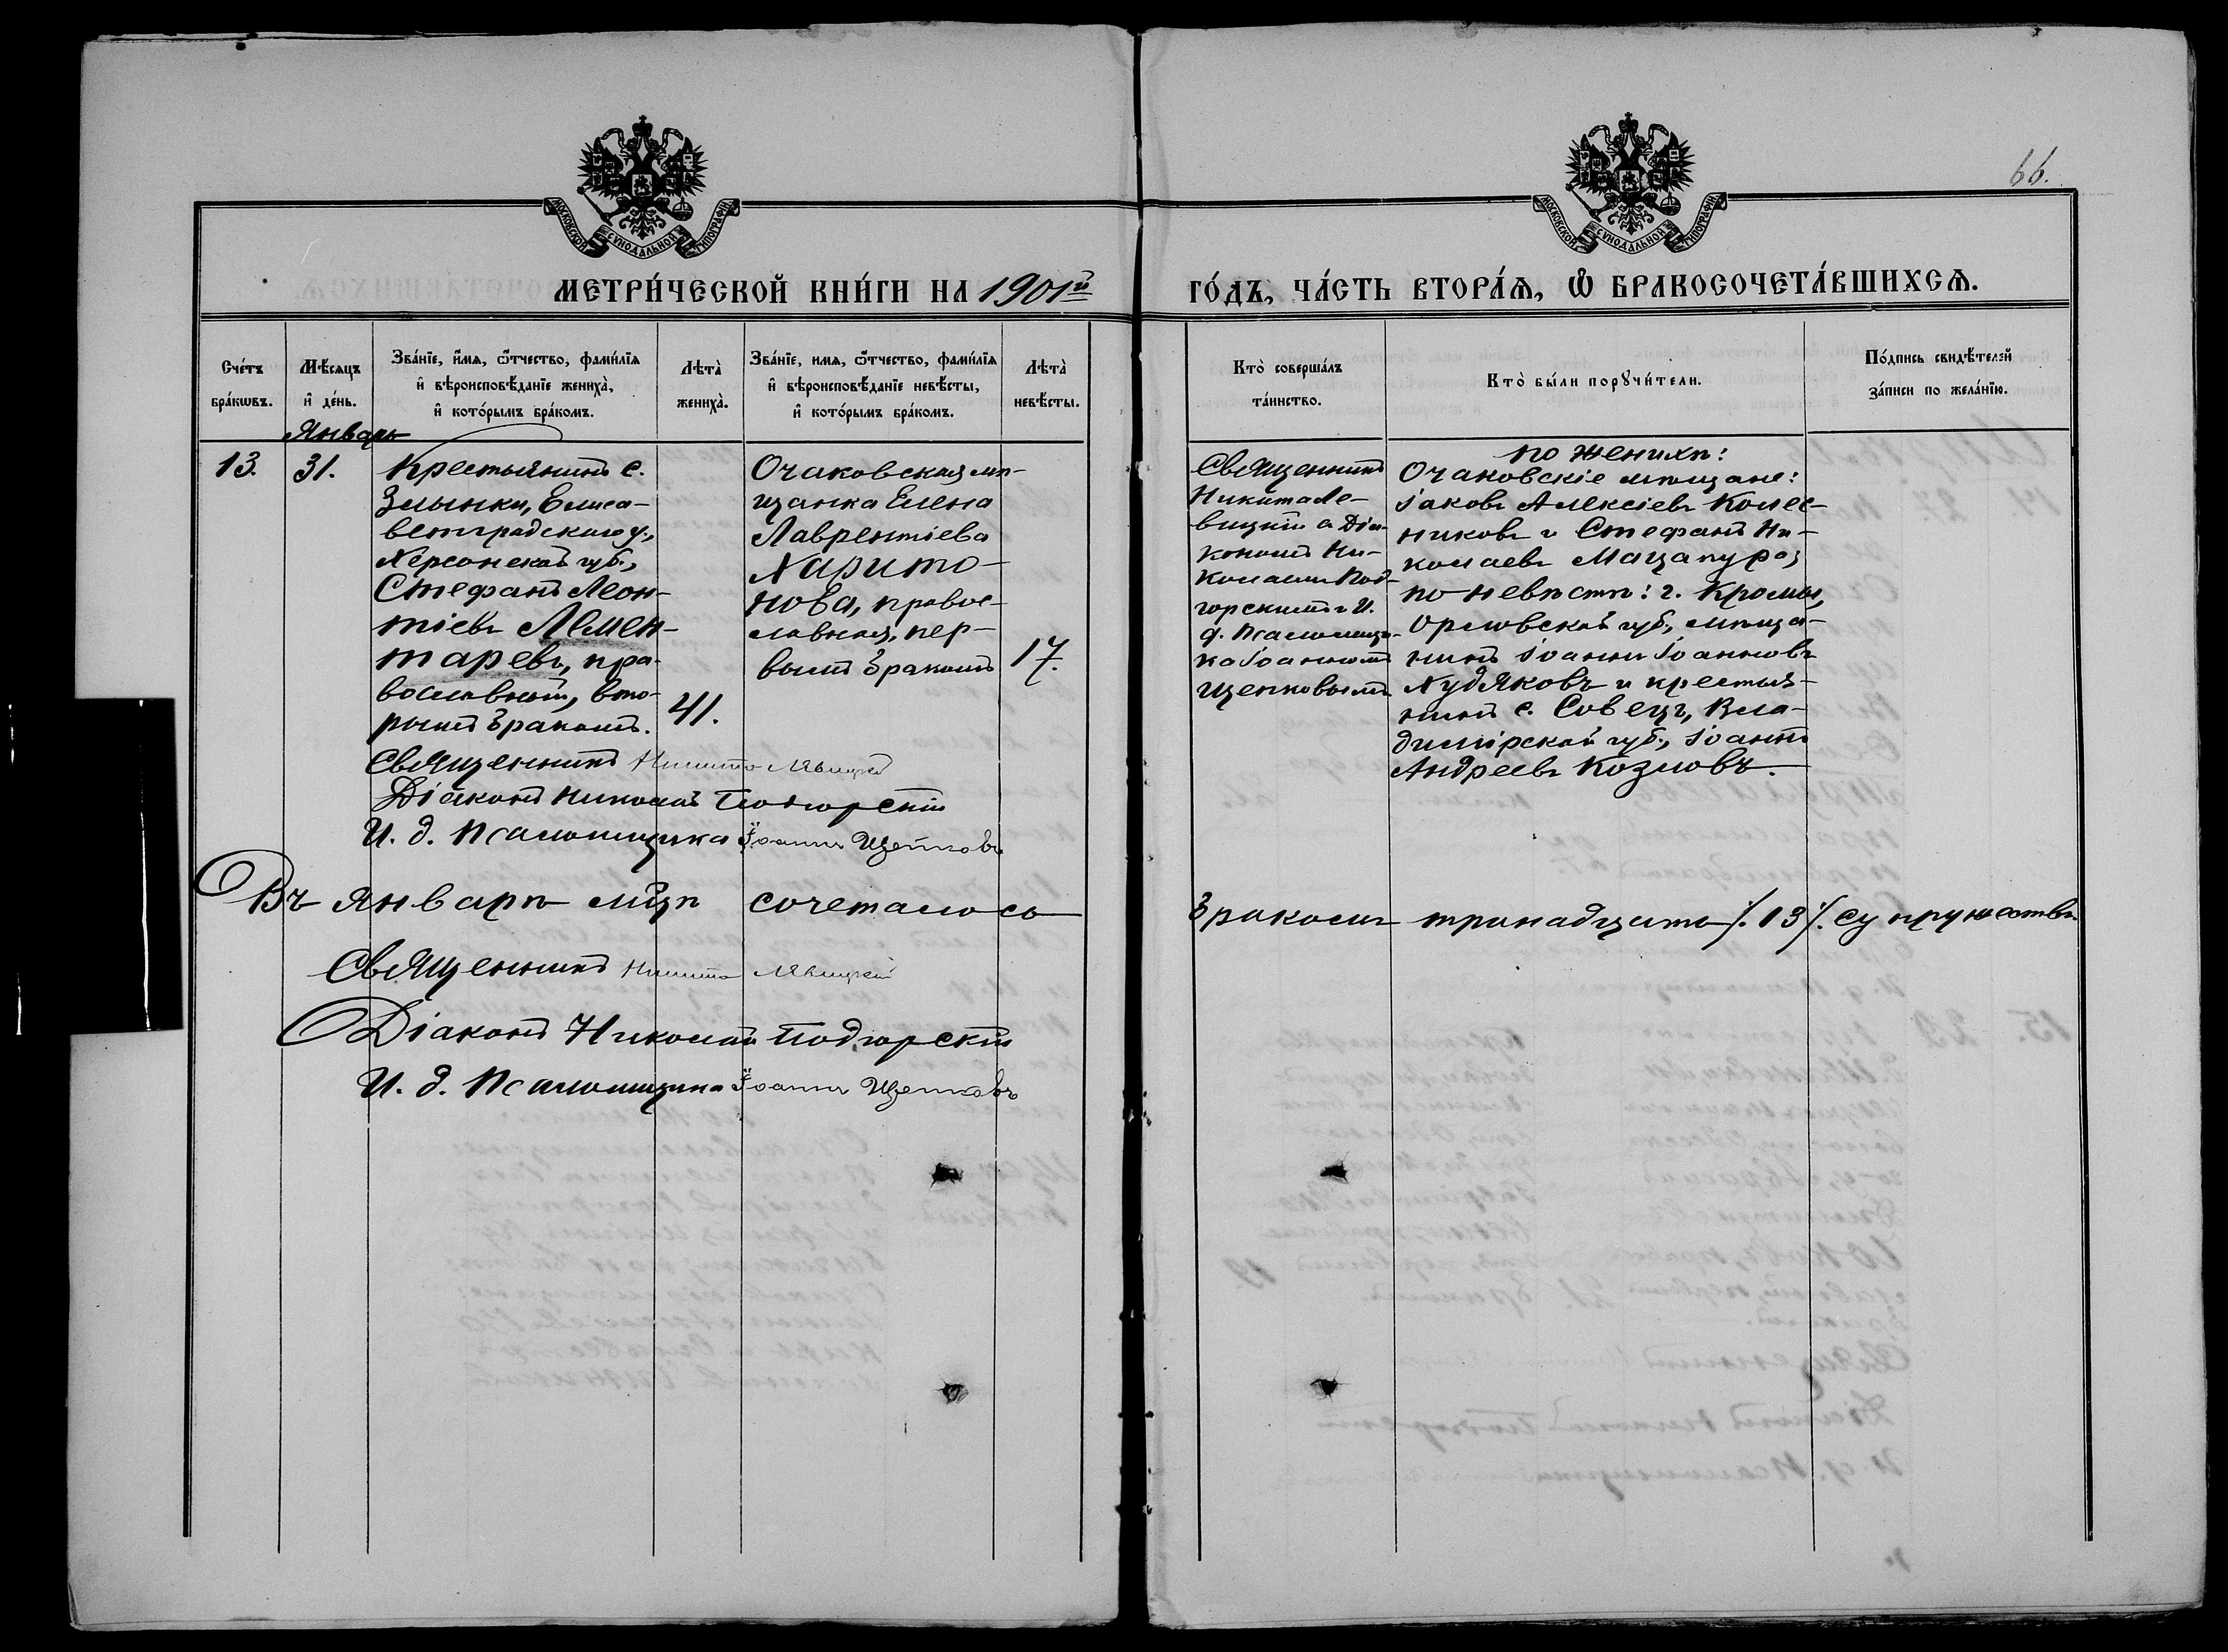 66.
МОСКОВСКОЙ СѴНОДАЛЬНОЙ ТИПОГРАФІИ
МОСКОВСКОЙ СѴНОДАЛЬНОЙ ТИПОГРАФІИ
МЕТРИ́ЧЕСКОЙ КНИ́ГИ НА 1901й
ГО́ДЪ, ЧА́СТЬ ВТОРА́Ѧ, Ѡ БРАКОСОЧЕТА́ВШИХСѦ.
Сче́тъ
бра́кѡвъ.
Мѣ́сяцъ
и҆ де́нь.
Зва́нїе, и҆́мя, ѻ҆́тчество, фами́лїя
и҆ вѣроисповѣ́данїе жениха̀,
и҆ кото́рымъ бра́комъ.
Лѣта̀
жениха̀.
Зва́нїе, имя, ѻ҆́тчество, фами́лїя
и҆ вѣроисповѣ́данїе невѣ́сты,
и҆ кото́рымъ бра́комъ.
Лѣта̀
невѣ́сты.
Кто̀ соверша́лъ
та́инство.
Кто̀ бы́ли порꙋчи́тели.
По́дпись свидѣ́телей
за́писи по жела́нїю.
Январь
13.
31.
Крестьянинъ с.
Злынки, Елиса-
ветградскаго у.,
Херсонской губ.,
Стефанъ Леон-
тіевъ Лемен-
таревъ, пра-
вославный, вто-
рымъ бракомъ.
41.
Очаковская мѣ-
щанка Елена
Лаврентіева
Харито-
нова, правос-
лавная, пер-
вымъ бракомъ
17.
Священникъ
Никита Ле-
вицкій съ Діа-
кономъ Ни-
колаемъ Под-
горскимъ и И.
д. Псаломщи-
ка Іоанномъ
Щепковымъ
по женихѣ:
Очаковскіе мѣщане:
Іаковъ Алексіевъ Колес-
никовъ и Стефанъ Ни-
колаевъ Мацапура;
по невѣстѣ: г. Кромы,
Орловской губ., мѣща-
нинъ Іоаннъ Іоанновъ
Худяковъ и крестья-
нинъ с. Совецъ, Вла-
димірской губ., Іоаннъ
Андреевъ Козловъ.
Священникъ Никита Левицкій
Діаконъ Николай Подгорскій
И. д. Псаломщика Іоаннъ Щепковъ
Въ Январѣ мцѣ сочеталось
бракомъ тринадцать ⁒ 13 ⁒ супружествъ.
Священникъ Никита Левицкій
Діаконъ Николай Подгорскій
И. д. Псаломщика Іоаннъ Щепковъ